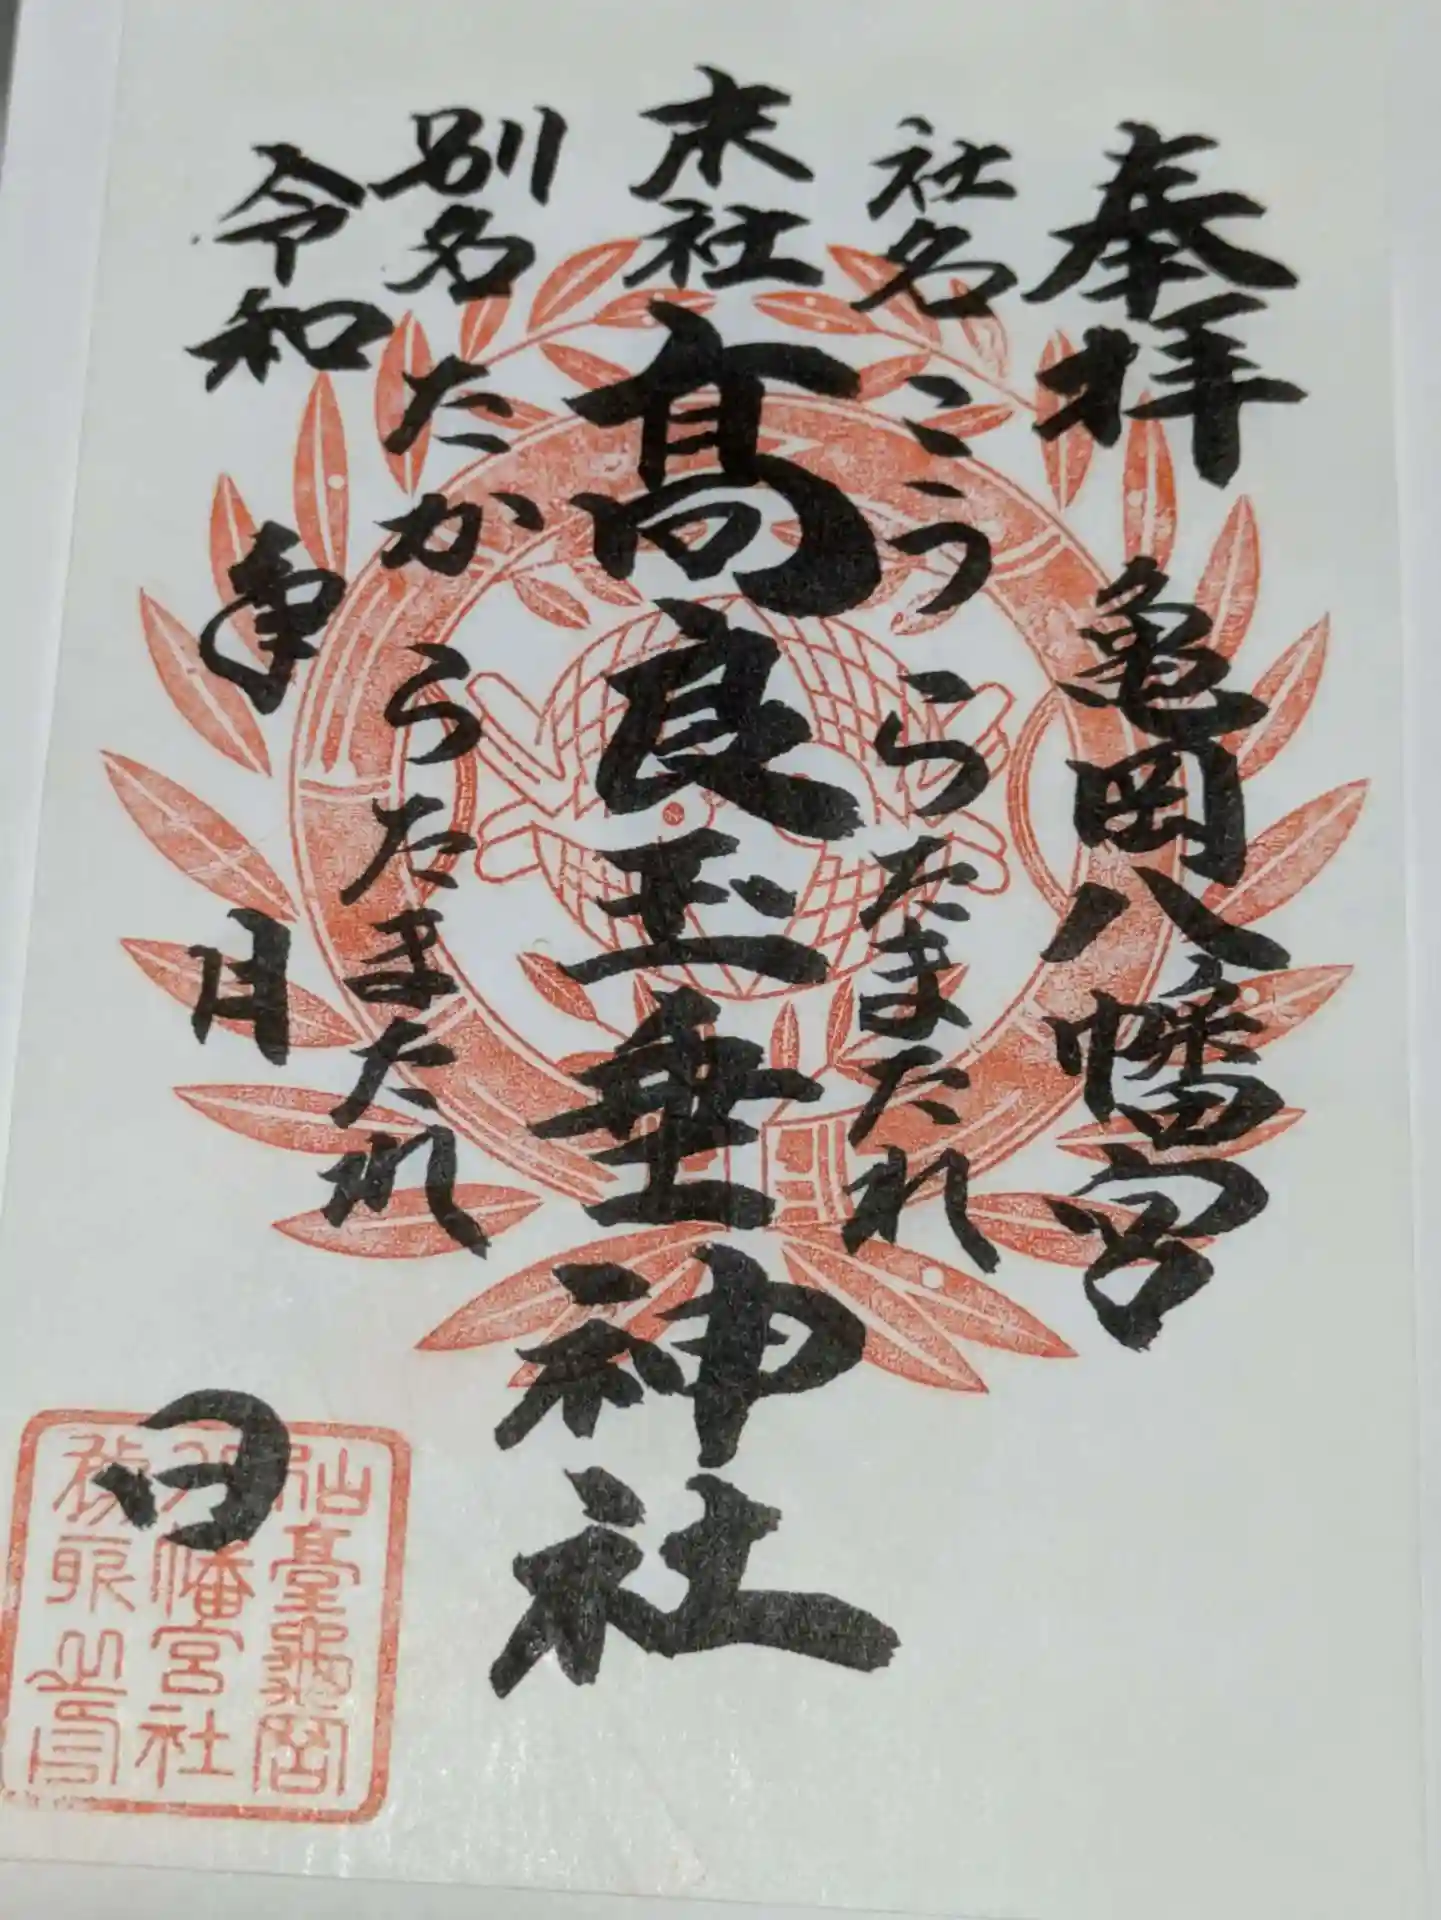 奉拝 亀岡八幡宮
社名 こうらたまたれ
末社 髙良玉垂神社
別名 たからたまたれ
令和 年 月 日
仙臺龜岡
八幡宮社
務所之印